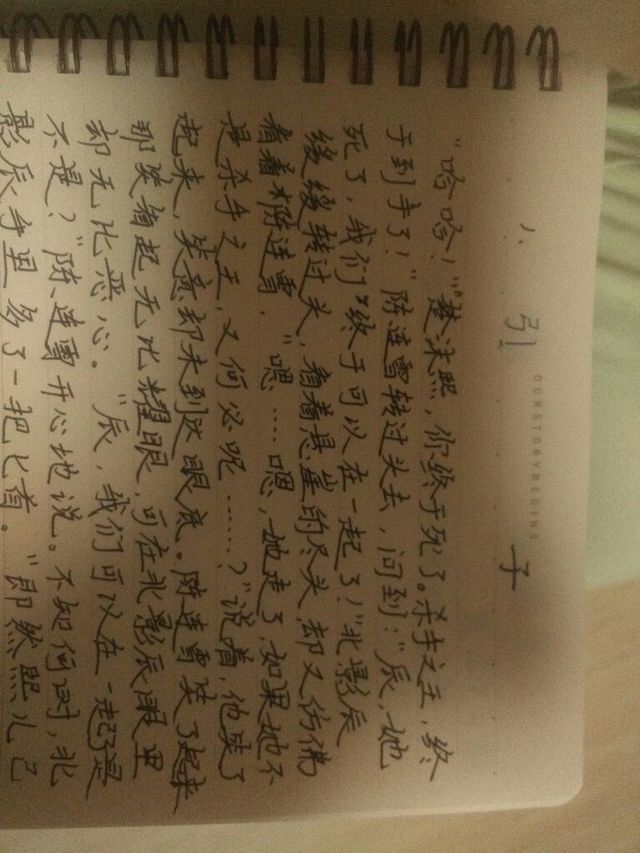 OURSTORYBEGINS
1、引 子
"哈哈！"楚沫熙，你终于死了。杀手之王，终
于到手了！"陈连雪转过头去，问到："辰，她
死了，我们终于可以在一起了！"北影辰
缓缓转过头，看着悬崖的尽头，却又仿佛
看着陈连雪，"嗯……嗯，她走了，如果她不
是杀手之王，又何必呢……？"说着，他笑了
起来，笑意却未到达眼底。陈连雪笑了起来
那笑容起无比耀眼，可在北影辰眼里
却无比恶心。"辰，我们可以在一起了是
不是？"陈连雪开心地说。不知何时，北
影辰手里多了一把匕首。"即然熙儿已